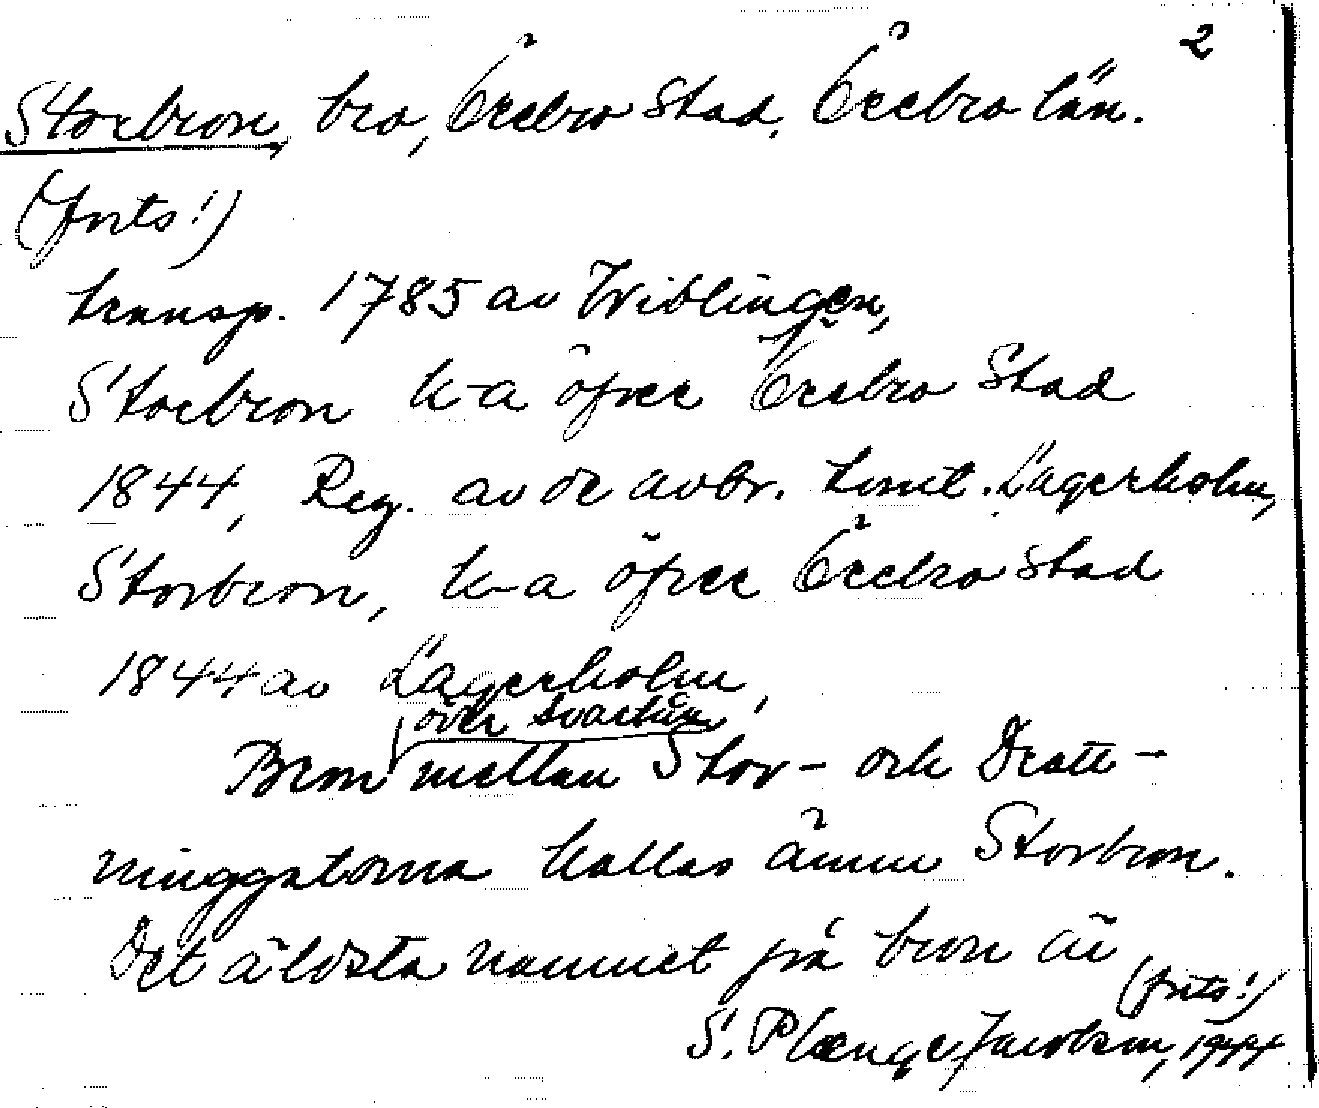 2
Storbron, bro, Örebro stad, Örebro län.
(forts!)
transp. 1785 av Wiblingen,
Storbron k-a öfver Örebro Stad
1844, Reg. av de avbr. tomt. Lagerholm,
Storbron, k-a öfver Örebro stad
1844 av Lagerholm,
över Svartån
Bron mellan Stor- och Drott-
ninggatorna kallas ännu Storbron.
Det äldsta namnet på bron är
(forts!)
S. Plænge Jacobson, 1944